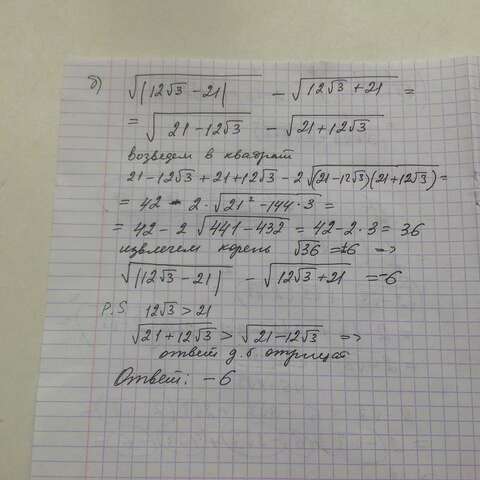 б) √|12√3 - 21| - √12√3 + 21 =
= √21 - 12√3 - √21 + 12√3
возведем в квадрат
21 - 12√3 + 21 + 12√3 - 2√(21 - 12√3)(21 + 12√3) =
= 42 - 2·√21² - 144·3 =
= 42 - 2√441 - 432 = 42 - 2·3 = 36
извлечем корень √36 = ±6 =>
√|12√3 - 21| - √12√3 + 21 = -6
P.S. 12√3 > 21
√21 + 12√3 > √21 - 12√3 =>
ответ д.б отрицат
Ответ: -6